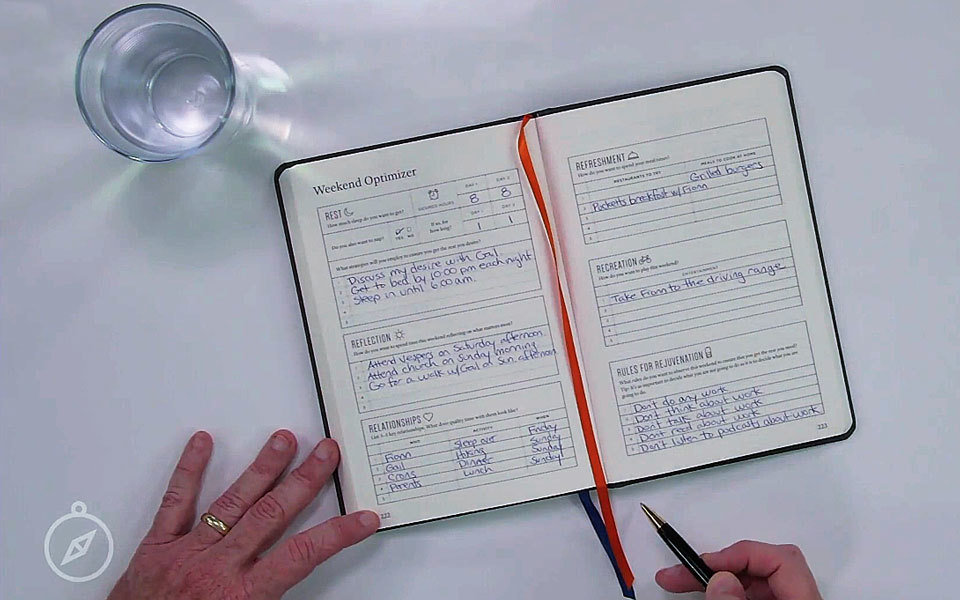 Weekend Optimizer
REST
How much sleep do you want to get?
DESIRED HOURS
DAY 1
8
DAY 2
8
Do you also want to nap?
YES
NO
If so, for how long?
DAY 1
1
DAY 2
1
What strategies will you employ to ensure you get the rest you desire?
1 Discuss my desire with Gail
2 Get to bed by 10:00 pm each night
3 Sleep in until 6:00 am.
4
5
REFLECTION
How do you want to spend time this weekend reflecting on what matters most?
1 Attend Vespers on Saturday afternoon
2 Attend church on Sunday morning
3 Go for a walk w/Gail of Sun. afternoon
4
5
RELATIONSHIPS
List 3–5 key relationships. What does quality time with them look like?
WHO ACTIVITY WHEN
1 Fionn Sleep over Friday
2 Gail Hiking Sunday
3 Dinner Sunday
4 Parents Lunch Sunday
5
222
REFRESHMENT
How do you want to spend your meal times?
RESTAURANTS TO TRY MEALS TO COOK AT HOME
1 Grilled burgers
2 Puckett's breakfast w/ Fionn
3
4
5
RECREATION
How do you want to play this weekend?
ENTERTAINMENT
1 Take Fionn to the driving range
2
3
4
5
RULES FOR REJUVENATION
What rules do you want to observe this weekend to ensure that you get the rest you need?
Tip: It's as important to decide what you are not going to do as it is to decide what you are
going to do.
1 Don't do any work
2 Don't think about work
3 Don't talk about work
4 Don't read about work
5 Don't listen to podcasts about work
223